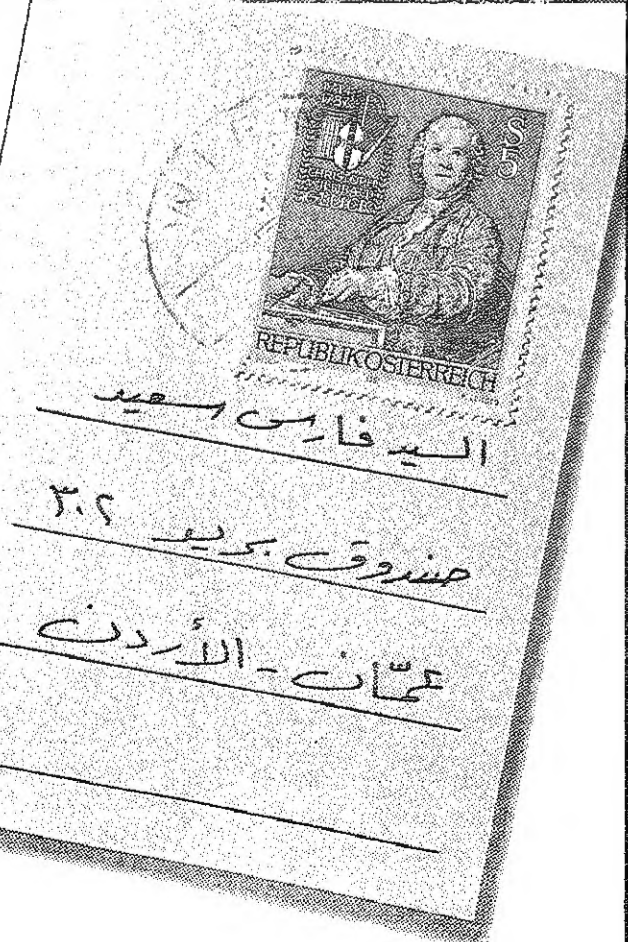 S
5
REPUBLIK ÖSTERREICH
السيد فارس سعيد
صندوق بريد ٣٠٢
عمّان - الأردن